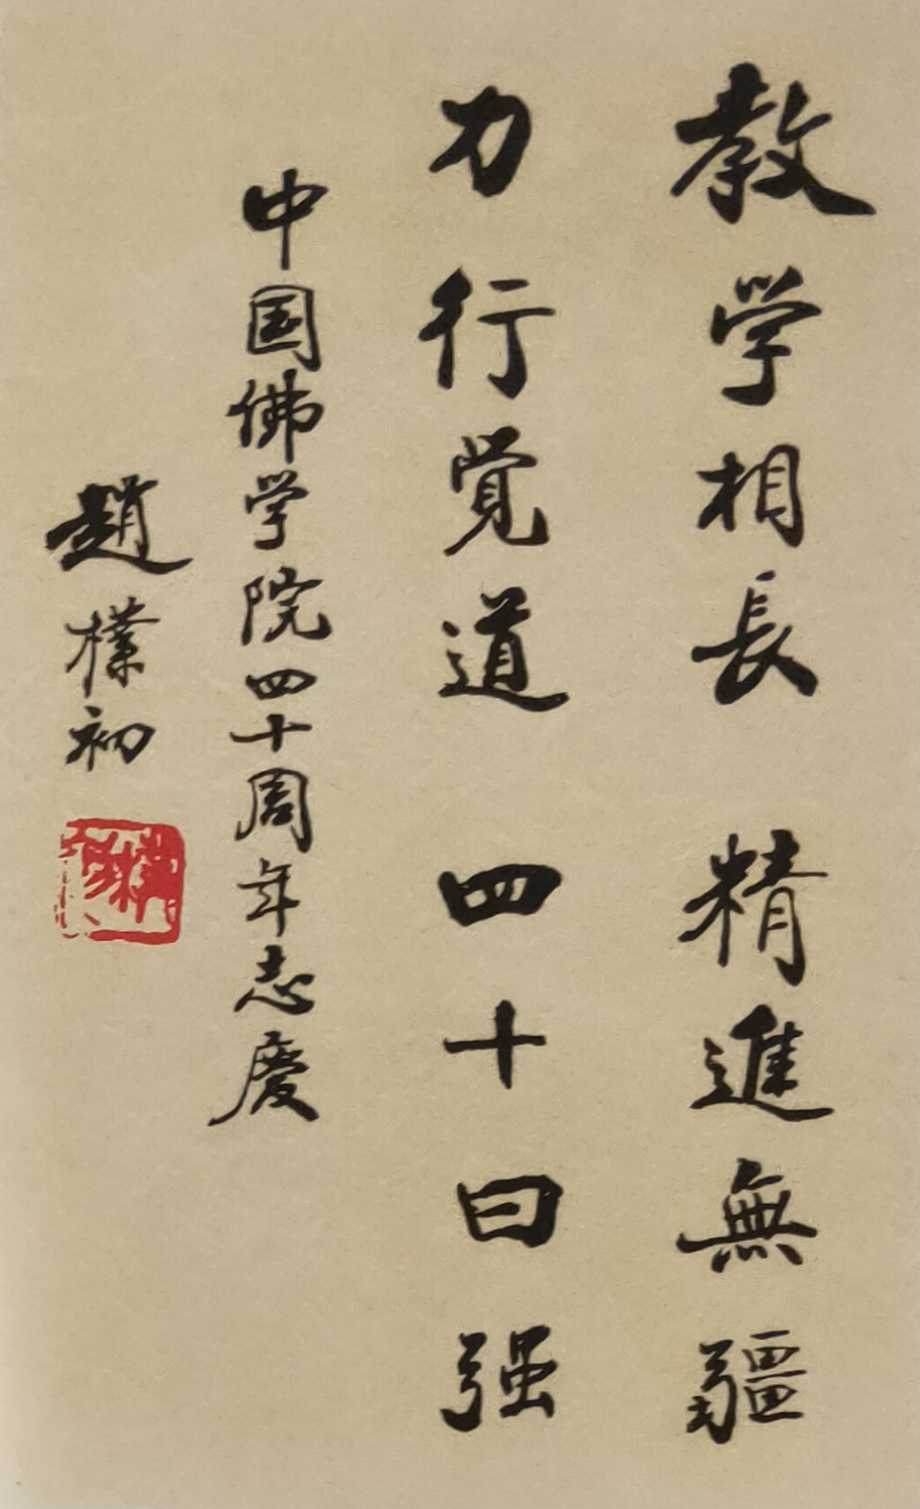 教学相長 精進無疆
力行覚道 四十曰强
中国佛学院四十周年志慶
趙樸初